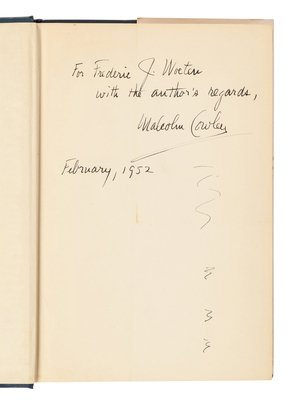 For Frederic J.
with the author's regards,
Malcolm Cowley
February, 1952